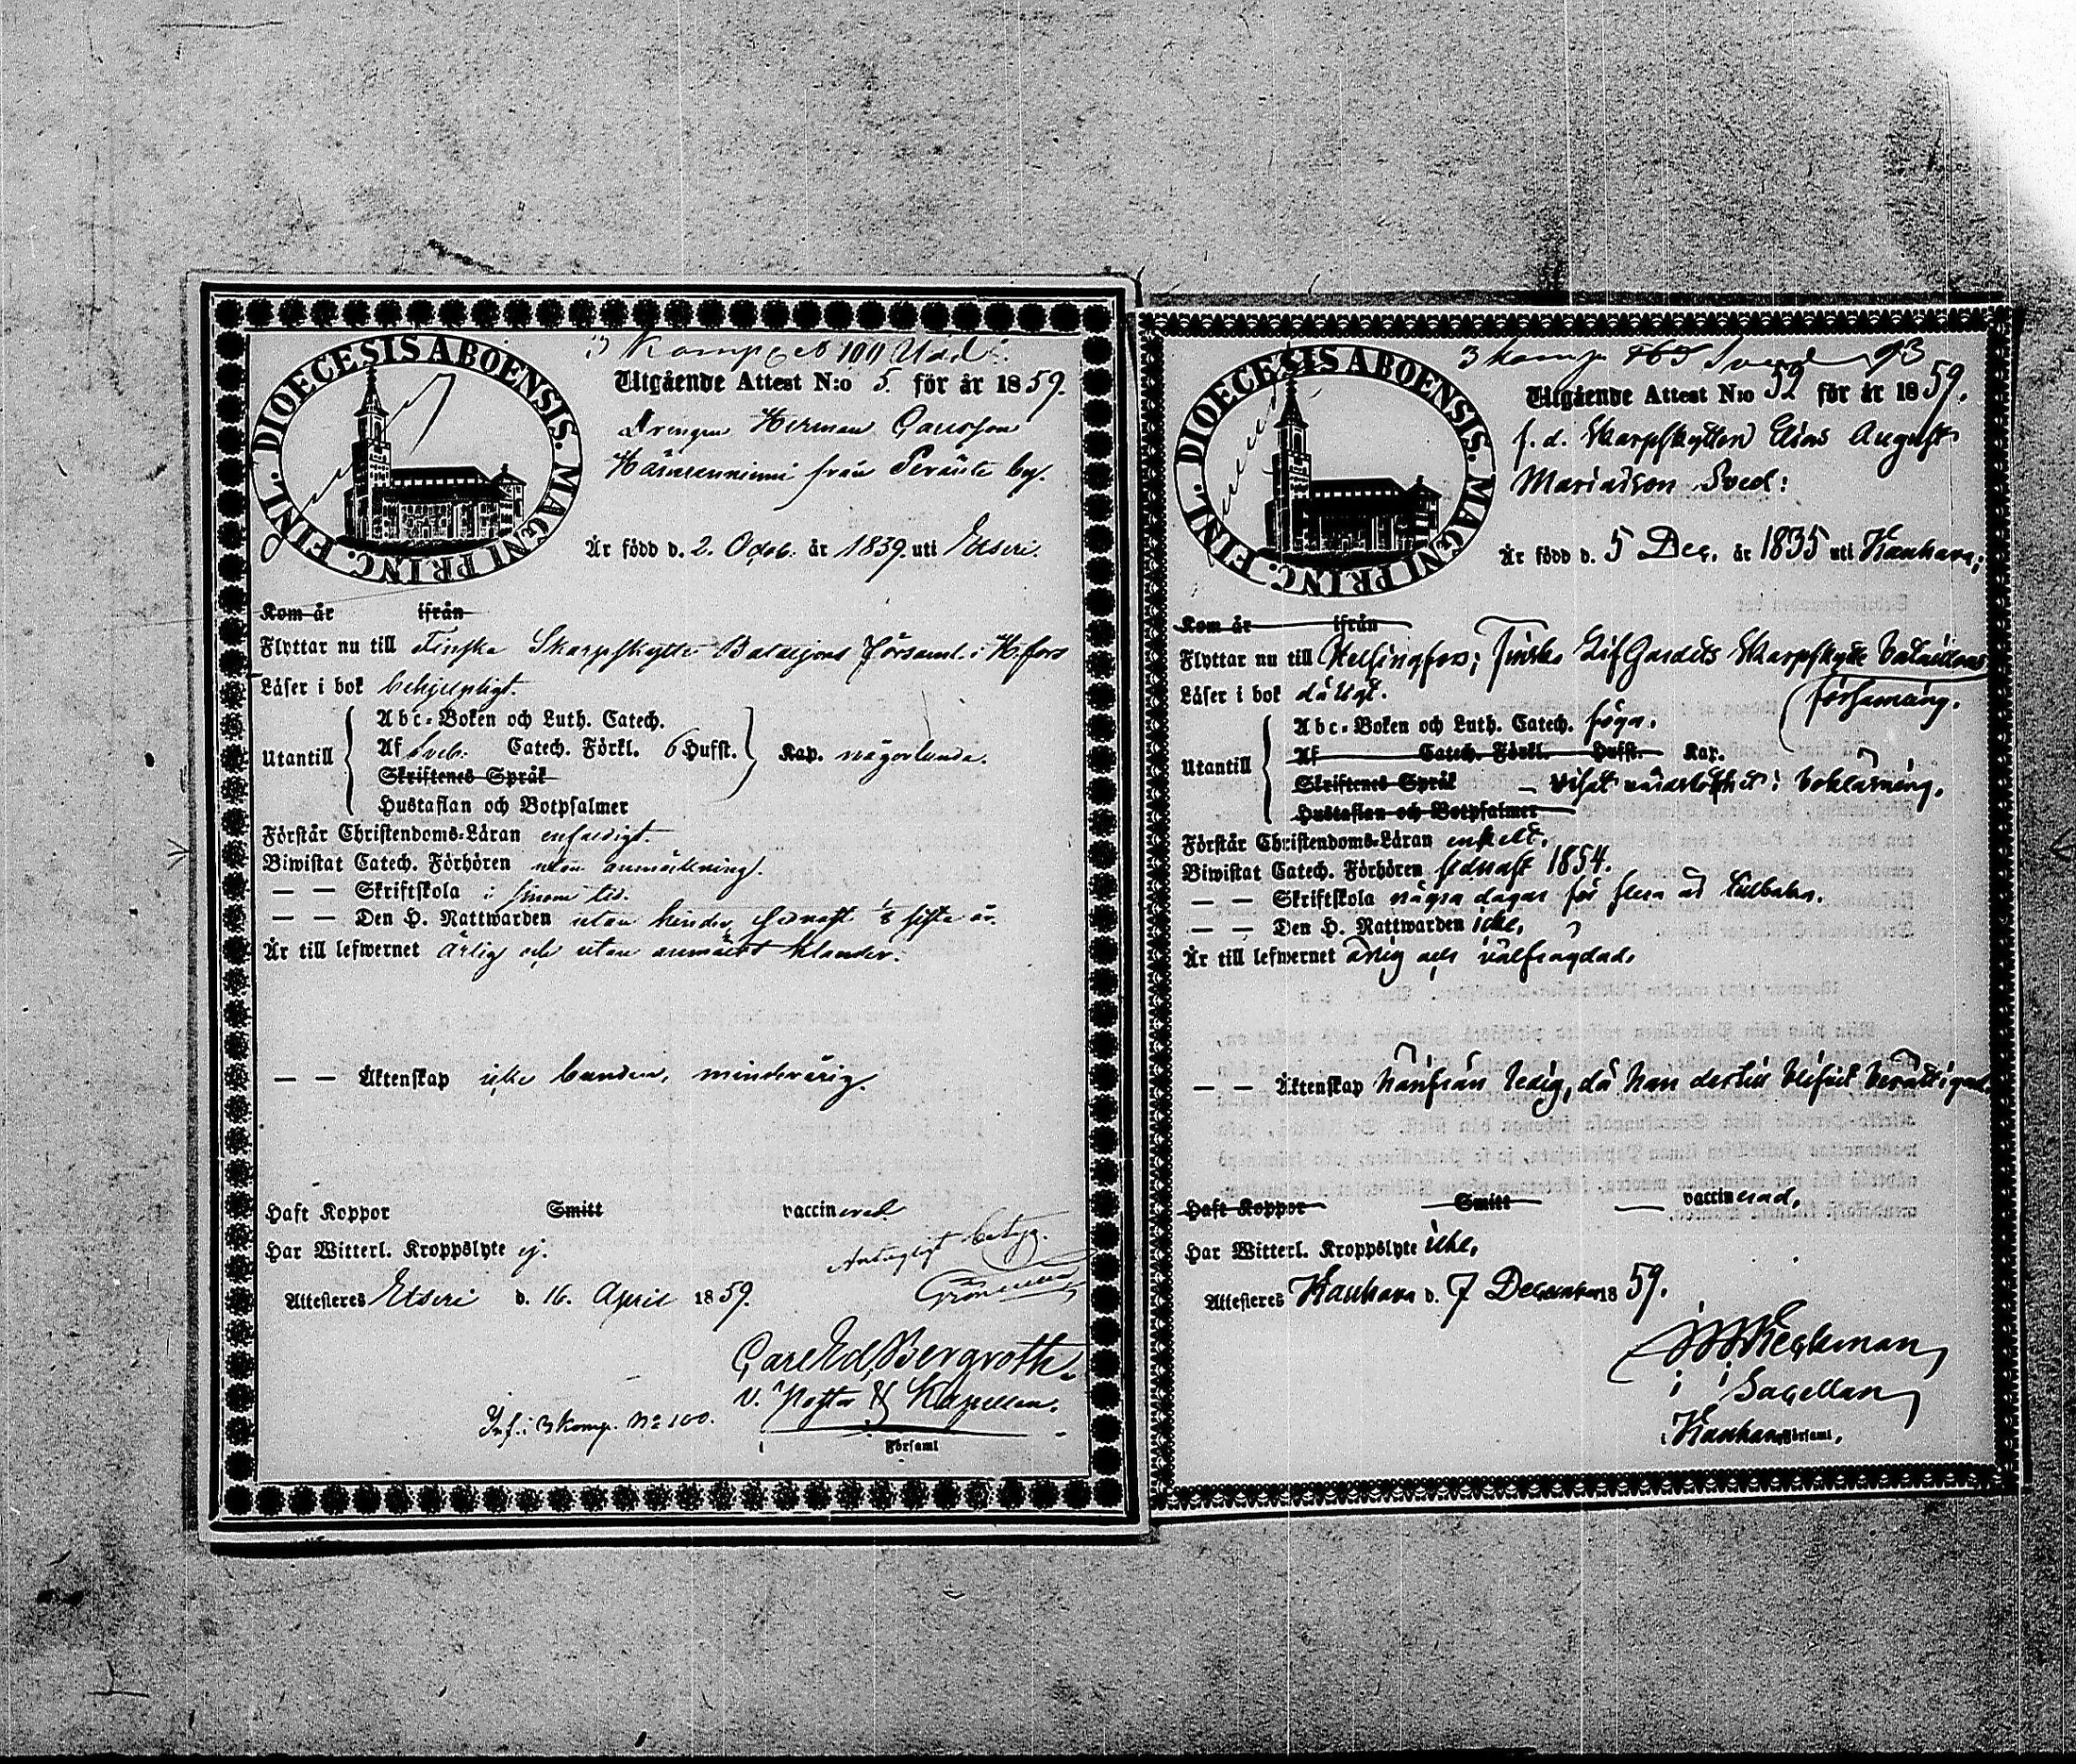 3 Komp 100 Udd:
DIOECESIS ABOENSIS. MAGNI PRINC. FINL.
Utgående Attest N:o 5. för år 1859.
Drengen Herman Carlsson
från Peränte by.
Är född d. 2. Octob. år 1839. uti Etseri.
Kom år ifrån
Flyttar nu till Finska Skarpskytte Bataljons Församl. i H:fors
Läser i bok behjelpligt.
Utantill
Abc-Boken och Luth. Catech.
Af Sveb. Catech. Förkl. 6 Hufst. Kap. någorlunda.
Skriftenes Språk
Hustaflan och Botpsalmer
Förstår Christendoms-Läran enfaldigt.
Biwistat Catech. Förhören utan anmärkning.
— — Skriftskola i sinom tid.
— — Den H. Nattwarden utan hinder, sednast sistl. år.
Är till lefwernet ärlig och utan anmärkt klander.
— — Äktenskap icke bunden, minderårig.
Haft Koppor Smitt vaccinerad
Har Witterl. Kroppslyte ej.
Antagligt betyg.
Attesteres Etseri d. 16. April 1859.
Carl Ed. Bergroth.
V. Pastor & Kapellan.
Inf. i 3 Komp. No 100.
i Förseml
3 Komp Sved 93
DIOECESIS ABOENSIS. MAGNI PRINC. FINL.
Utgående Attest N:o 52 för år 1859.
f. d. Skarpskytten Elias August
Mariaison Sved:
Är född d. 5 Dec. år 1835 uti Kauhava;
Kom år ifrån
Flyttar nu till Helsingfors; Finska Lif Gardets Skarpskytte Bataillons
församling.
Läser i bok dåligt.
Utantill
Abc-Boken och Luth. Catech. föga.
Af Catech. Förkl. Hufst. Kap.
Skriftenes Språk — visat vårdslöshet i boklärning.
Hustaflan och Botpsalmer
Förstår Christendoms-Läran enkelt.
Biwistat Catech. Förhören sednast 1854.
— — Skriftskola några dagar för flera år tillbaka.
— — Den H. Nattwarden icke,
Är till lefwernet ärlig och välfrägdad.
— — Äktenskap härifrån ledig, då han dertill blifvit berättigad.
Haft Koppor Smitt vaccinerad,
Har Witterl. Kroppslyte icke,
Attesteres Kauhava d. 7 December 1859.
Heckman
Sacellan
i Kauhava Församl.